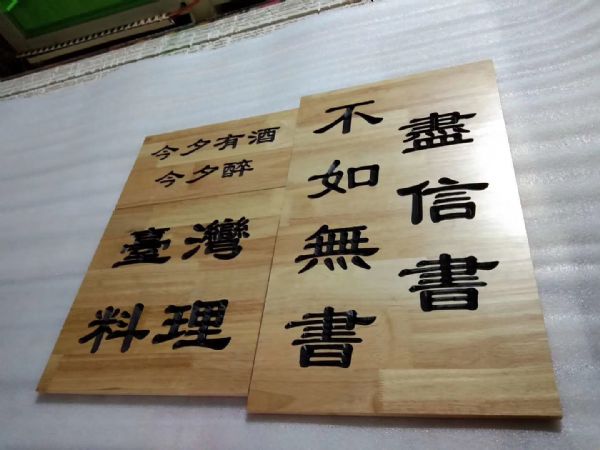 盡信書
不如無書
今夕有酒
今夕醉
臺灣
料理